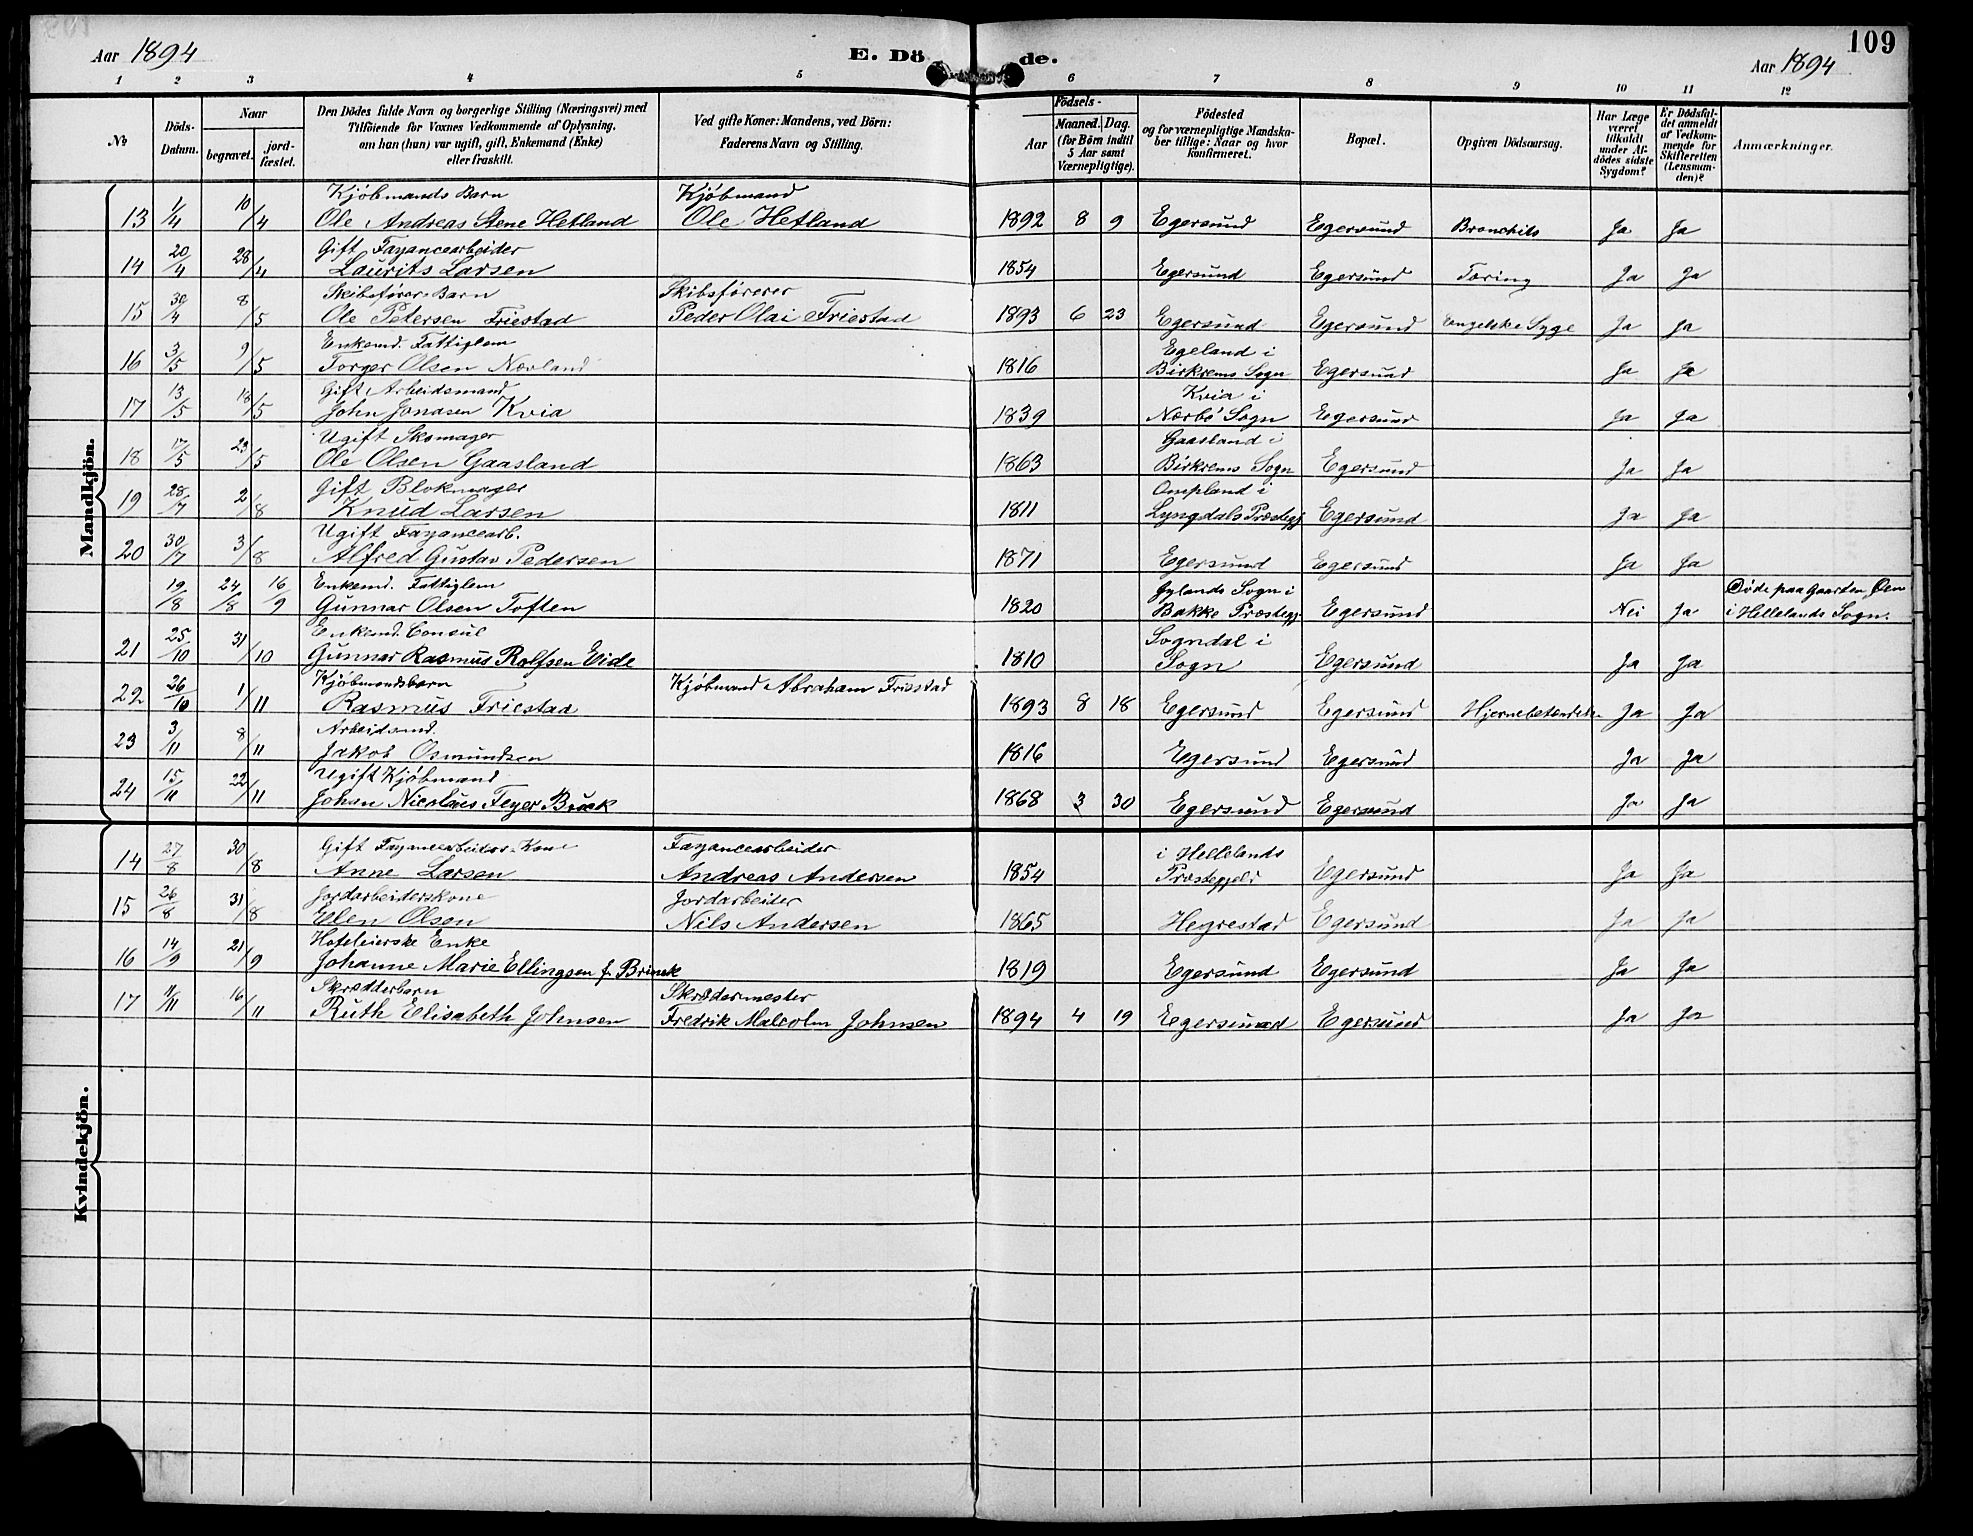 109
Aar 1894 E. Dö de. Aar 1894
1 2 3 4 5 6 7 8 9 10 11 12
№
Döds-Datum.
Naar
begravet.
jord-fæstet.
Den Dödes fulde Navn og borgerlige Stilling (Næringsvei) med
Tilföiende for Voxnes Vedkommende af Oplysning,
om han (hun) var ugift, gift, Enkemand (Enke)
eller fraskilt.
Ved gifte Koner: Mandens, ved Börn:
Faderens Navn og Stilling.
Födsels-
Aar
Maaned. Dag.
(for Börn indtil
5 Aar samt
Værnepligtige).
Födested
og for værnepligtige Mandska-
ber tillige: Naar og hvor
konfirmeret.
Bopæl.
Opgiven Dödsaarsag.
Har Læge
været
tilkaldt
under Af-
dödes sidste
Sygdom?
Er Dödsfal-
det anmeldt
af Vedkom-
mende for
Skifteretten
(Lensman-
den)?
Anmærkninger.
Mandkjön.
Kjøbmands Barn Kjøbmand
13 1/4 10/4 Ole Andreas Stene Hetland Ole Hetland 1892 8 9 Egersund Egersund Bronchits Ja Ja
Gift Fayancearbeider
14 20/4 28/4 Laurits Larsen 1854 Egersund Egersund Tæring Ja Ja
Skibsfører-Barn Skibsfører
15 30/4 8/5 Ole Petersen Friestad Peder Olai Friestad 1893 6 23 Egersund Egersund Engelske Syge Ja Ja
Enkemd. Fattiglem Egeland i
16 3/5 9/5 Torger Olsen Nævland 1816 Birkrems Sogn Egersund Ja Ja
Gift Arbeidsmand Kvia i
17 13/5 18/5 John Jonasen Kvia 1839 Nærbø Sogn Egersund Ja Ja
Ugift Skomager Gaasland i
18 17/5 23/5 Ole Olsen Gaasland 1863 Birkrems Sogn Egersund Ja Ja
Gift Blokmager Ompland i
19 28/7 2/8 Knud Larsen 1811 Lyngdals Præstegj Egersund Ja Ja
Ugift Fayancearb.
20 30/7 3/8 Alfred Gustav Pedersen 1871 Egersund Egersund Ja Ja
Enkemd. Fattiglem Gylands Sogn i Døde paa Gaarden Øen
19/8 24/8 16/9 Gunnar Olsen Toften 1820 Bakke Præstegj Egersund Nei Ja i Hellelands Sogn.
Enkemd. Consul Sogndal i
21 25/10 31/10 Gunnar Rasmus Rolfsen Eide 1810 Sogn Egersund Ja Ja
Kjøbmandsbarn
22 26/10 1/11 Rasmus Friestad Kjøbmand Abraham Friestad 1893 8 18 Egersund Egersund Hjernebetændelse Ja Ja
Arbeidsmd.
23 3/11 8/11 Jakob Osmundsen 1816 Egersund Egersund Ja Ja
Ugift Kjøbmand
24 15/11 22/11 Johan Nicolaus Feyer Buck 1868 3 30 Egersund Egersund Ja Ja
Kvindekjön.
Gift Fayancearbeider-Kone Fayancearbeider i Hellelands
14 27/8 30/8 Anne Larsen Andreas Andersen 1854 Præstegjeld Egersund Ja Ja
Jordarbeiderskone Jordarbeider
15 26/8 31/8 Elen Olsen Nils Andersen 1865 Hegrestad Egersund Ja Ja
Hoteleierske Enke
16 14/9 21/9 Johanne Marie Ellingsen f. 1819 Egersund Egersund Ja Ja
Skrædderbarn Skrædermester
17 11/11 16/11 Ruth Elisabeth Johnsen Fredrik Malcolm Johnsen 1894 4 19 Egersund Egersund Ja Ja